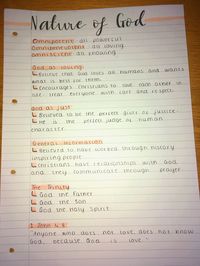 Nature of God
Omnipotent all powerful
Omnibenevolent all loving
Omniscient all knowing
God as loving:
Believe that God loves all humans and wants
what is best for them.
Encourages Christians to love each other
and treat everyone with care and respect.
God as just:
Believed to be the perfect giver of justice
He is the perfect judge of human
character.
General information:
Believed to have worked through history
inspiring people
Christians have relationships with God
and they communicate through prayer.
The Trinity
God the Father
God the Son
God the Holy Spirit
1 John 4:8
"Anyone who does not love does not know
God, because God is love"